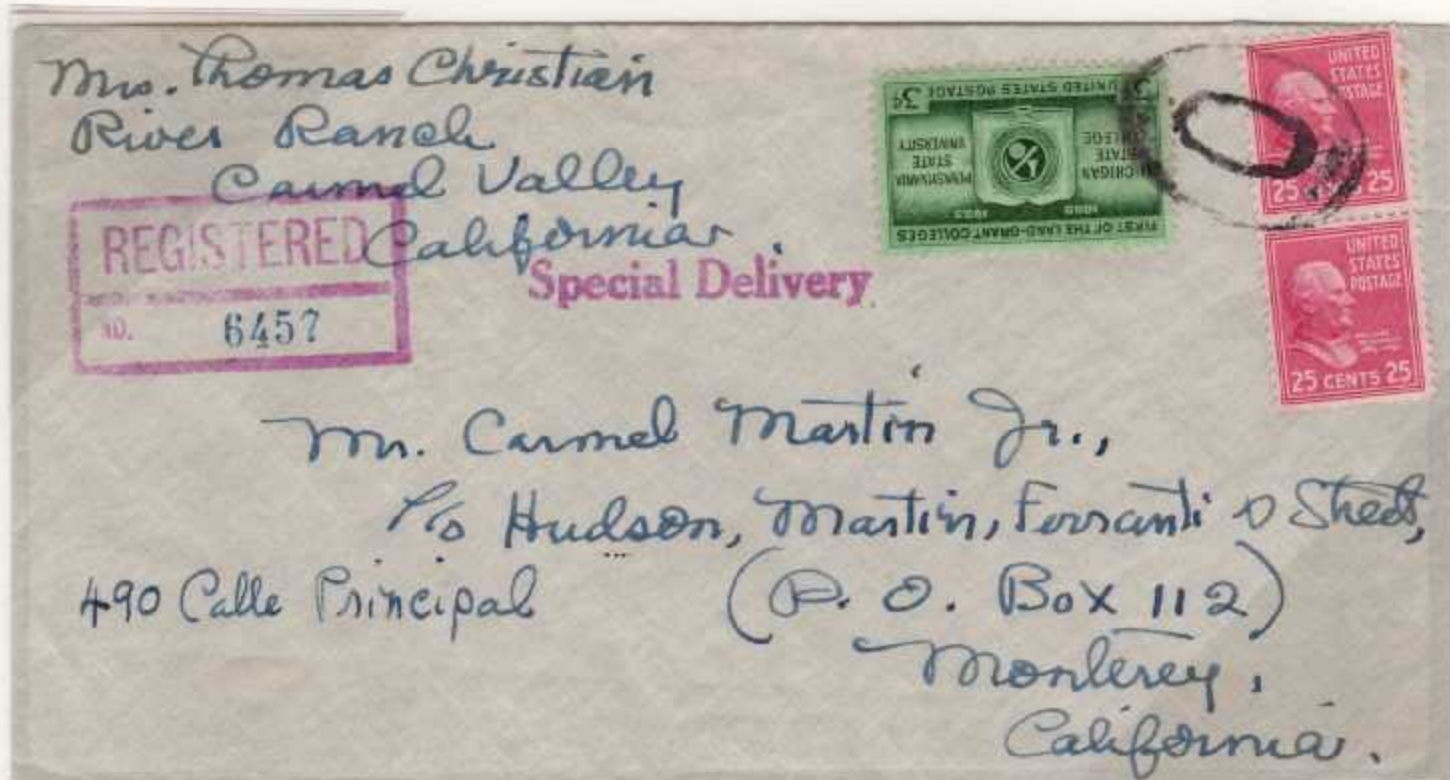 Mrs. Thomas Christian
River Ranch
Carmel Valley
California.
REGISTERED
NO. 6457
Special Delivery
3¢ UNITED STATES POSTAGE 3¢
MICHIGAN STATE COLLEGE
PENNSYLVANIA STATE UNIVERSITY
1855 1955
FIRST OF THE LAND-GRANT COLLEGES
UNITED
STATES
POSTAGE
25 CENTS 25
UNITED
STATES
POSTAGE
25 CENTS 25
Mr. Carmel Martin Jr.,
c/o Hudson, Martin, Ferranti & Street,
490 Calle Principal
(P. O. Box 112)
Monterey,
California.